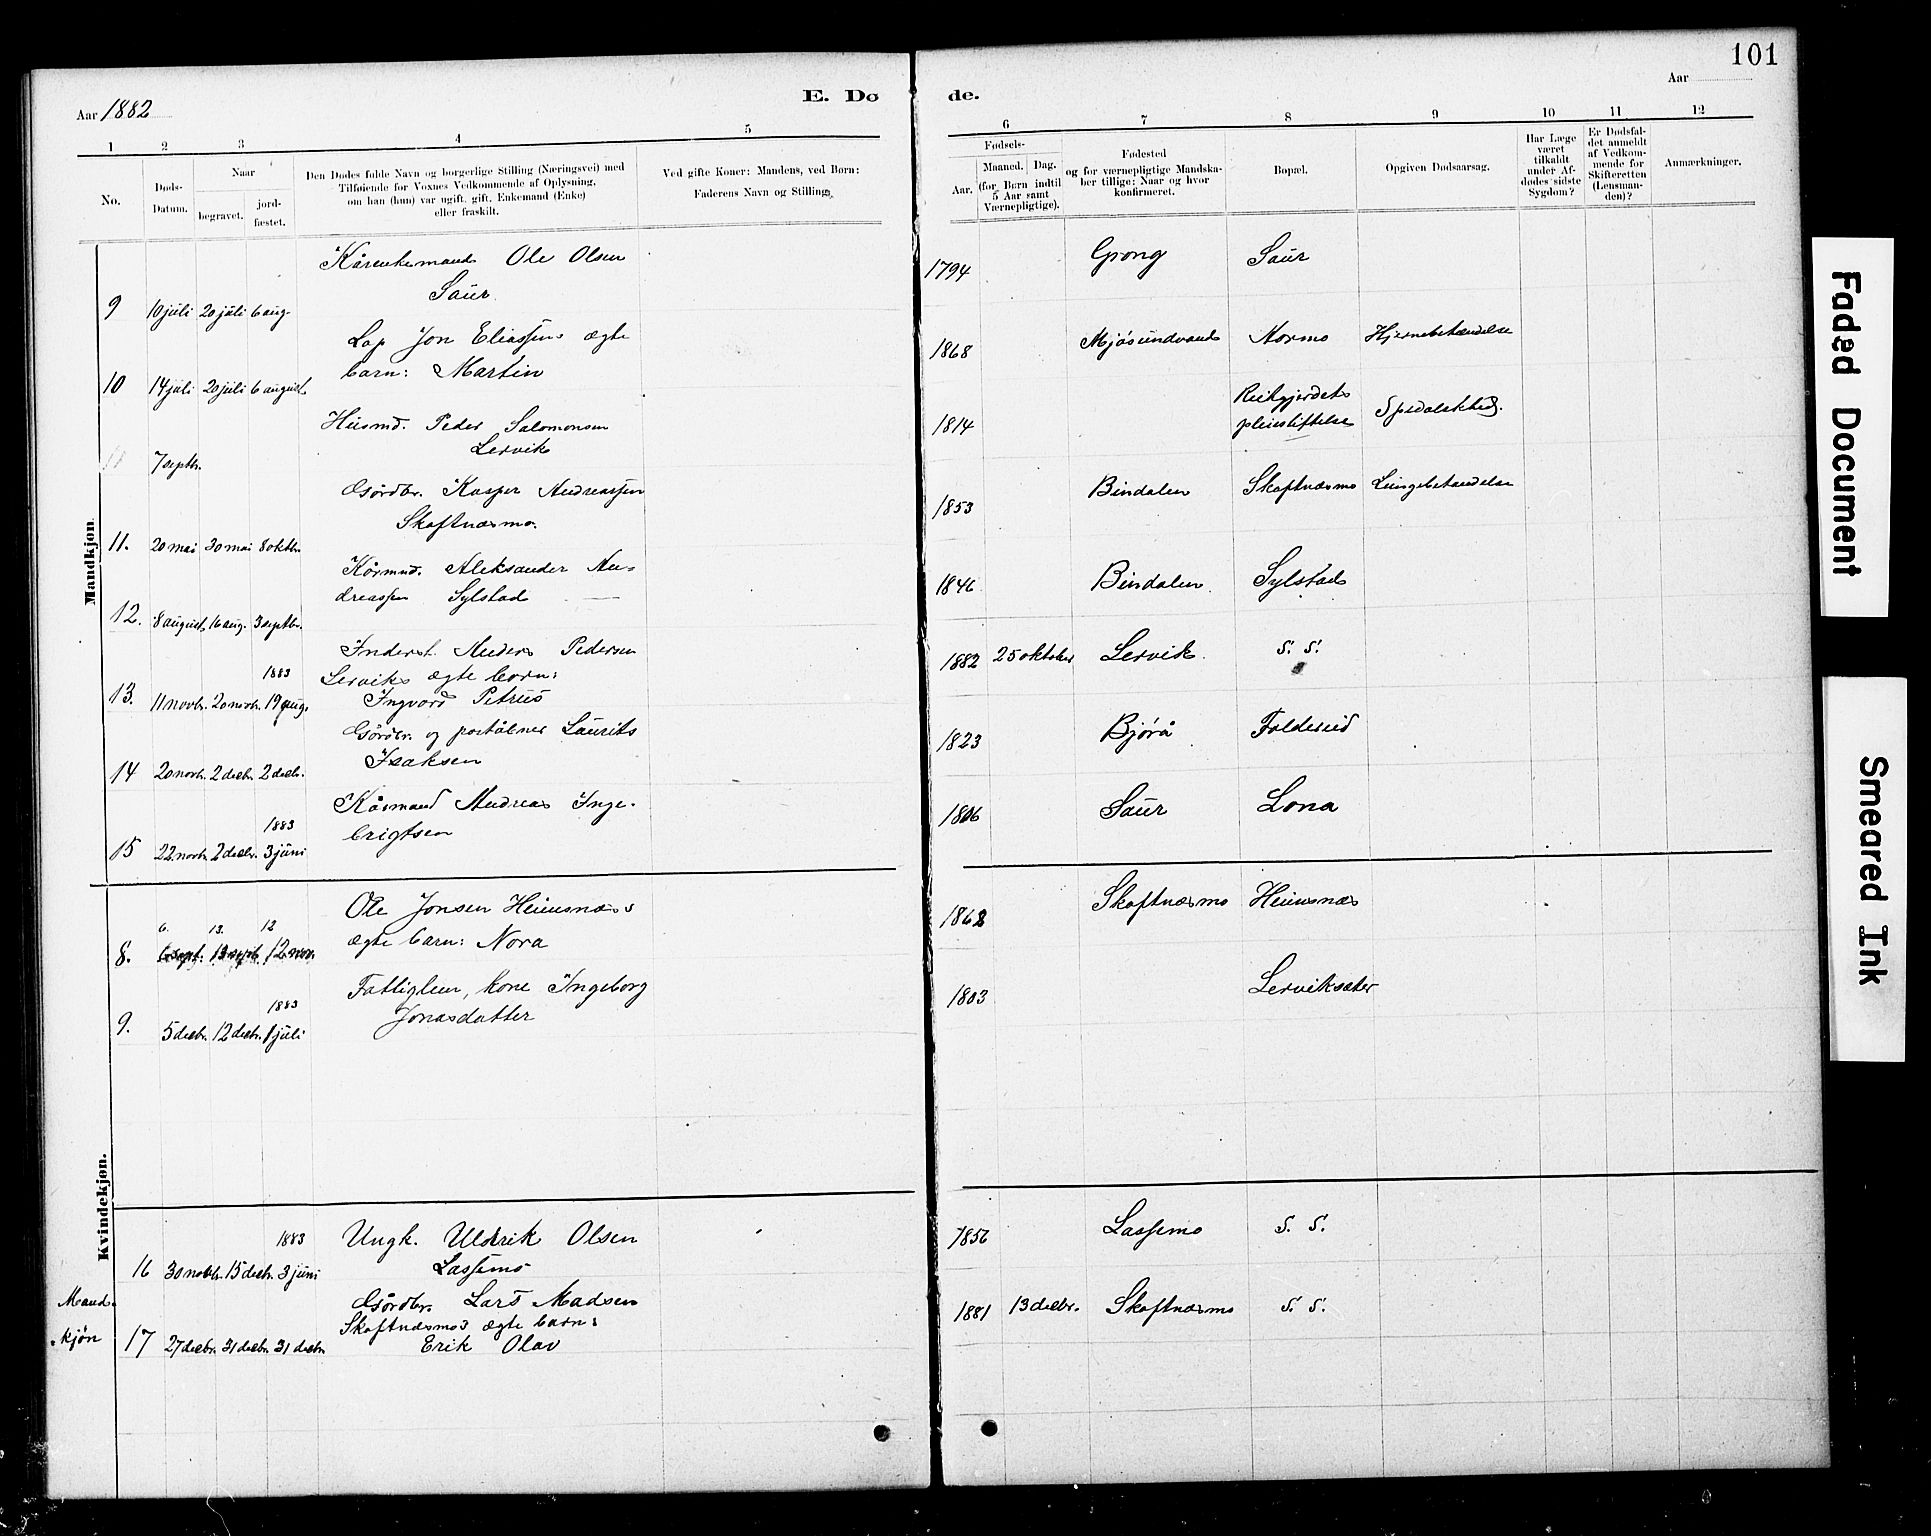 101
Aar 1882
E. Dø
de.
Aar
1 2 3 4 5 6 7 8 9 10 11 12
No.
Døds-
Datum.
Naar
begravet.
jord-
fæstet.
Den Dødes fulde Navn og borgerlige Stilling (Næringsvei) med
Tilføiende for Voxnes Vedkommende af Oplysning,
om han (hun) var ugift, gift, Enkemand (Enke)
eller fraskilt.
Ved gifte Koner: Mandens, ved Børn:
Faderens Navn og Stilling.
Fødsels-
Aar.
Maaned. Dag.
(for Børn indtil
5 Aar samt
Værnepligtige).
Fødested
og for værnepligtige Mandska-
ber tillige: Naar og hvor
konfirmeret.
Bopæl.
Opgiven Dødsaarsag.
Har Læge
været
tilkaldt
under Af-
dødes sidste
Sygdom?
Er Dødsfal-
det anmeldt
af Vedkom-
mende for
Skifteretten
(Lensman-
den)?
Anmærkninger.
Mandkjøn.
Kårenkemand Ole Olsen
Saur
9 10 juli 20 juli 6 aug.
1794 Grong Saur
Lap Jon Eliassens ægte
barn: Martin
10 14 juli 20 juli 6 august
1868 Mjøsundvand Aormo Hjernebetændelse
Husmd. Peder Salomonsen
Lervik
7 septbr.
1814 Reitgjerdets
pleiestiftelse Spedalskhed.
Gårdbr. Kasper Andreassen
Skoftnæsmo.
11. 20 mai 30 mai 8 oktbr.
1853 Bindalen Skoftnæsmo Lungebetændelse
Kårmnd. Aleksander An=
dreassen Sylstad
12. 8 august 16 aug. 3 septbr.
1846 Bindalen Sylstad
Inderst. Anders Pedersen
Lerviks ægte barn:
Ingvard Petrus
1883
13. 11 novbr. 20 novbr. 19 aug.
1882 25 oktober Lervik S. S.
Gårdbr. og poståbner Laurits
Isaksen
14 20 novbr. 2 decbr. 2 decbr.
1823 Bjørå Foldereid
Kårmand Andreas Inge-
brigtsen
1883
15 22 novbr. 2 decbr. 3 juni
1806 Saur Lona
Kvindekjøn.
Ole Jonsen Heimsnæs's
ægte barn: Nora
6. 13. 12
8. 6 sept. 13 septb. 12 nov.
1868 Skoftnæsmo Heimsnæs
Fattiglem, kone Ingeborg
Jonasdatter
1883
9. 5 decbr. 12 decbr. 1 juli
1803 Lerviksæter
Ungk. Uldrik Olsen
Lassemo
1883
16 30 novbr. 15 decbr. 3 juni
1856 Lassemo S. S.
Mand-
kjøn
Gårdbr. Lars Madsen
Skoftnæsmos ægte barn:
Erik Olav
17 27 decbr. 31 decbr. 31 decbr.
1881 13 decbr. Skoftnæsmo S. S.
Faded Document
Smeared Ink